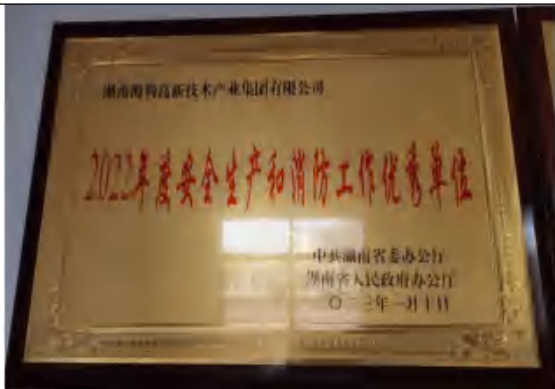 湖南海利高新技术产业集团有限公司
2022年度安全生产和消防工作优秀单位
中共湖南省委办公厅
湖南省人民政府办公厅
年一月十日